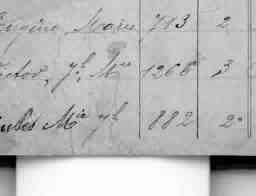 Eugène Marie 713 2
Victor, Jh, Mie 1266 3
Jules Mie Jh 882 2e